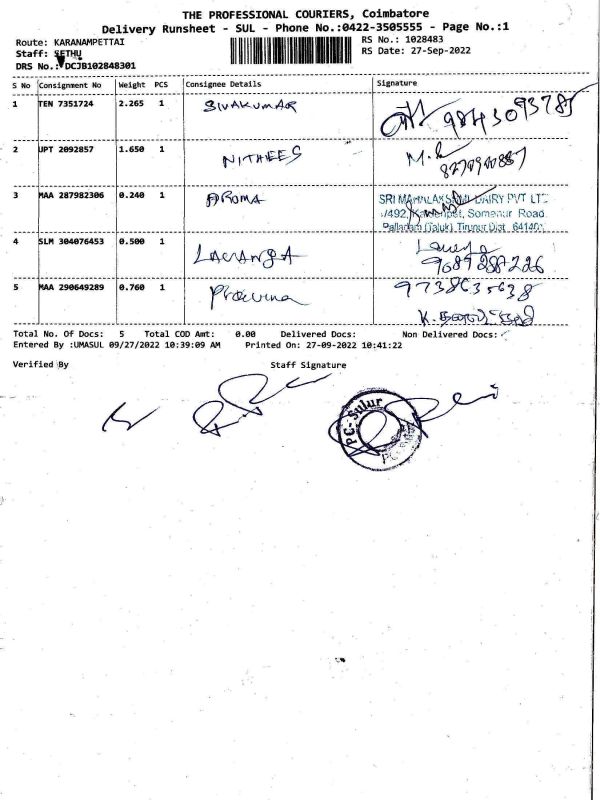 THE PROFESSIONAL COURIERS, Coimbatore
Delivery Runsheet - SUL - Phone No.:0422-3505555 - Page No.:1
Route: KARANAMPETTAI
RS No.: 1028483
Staff: SETHU
RS Date: 27-Sep-2022
DRS No.: DCJB102848301
S No Consignment No Weight PCS Consignee Details Signature
1 TEN 7351724 2.265 1 SIVAKUMAR
2 UPT 2092857 1.650 1 NITHEES
3 MAA 287982306 0.240 1 AROMA
SRI MAHALAKSHMI DAIRY PVT LTD
Somanur Road
Palladam (Taluk) Tirupur Dist
4 SLM 304076453 0.500 1
5 MAA 290649289 0.760 1 9738635638
Total No. Of Docs: 5 Total COD Amt: 0.00 Delivered Docs: Non Delivered Docs:
Entered By :UMASUL 09/27/2022 10:39:09 AM Printed On: 27-09-2022 10:41:22
Verified By Staff Signature
PC- Sulur